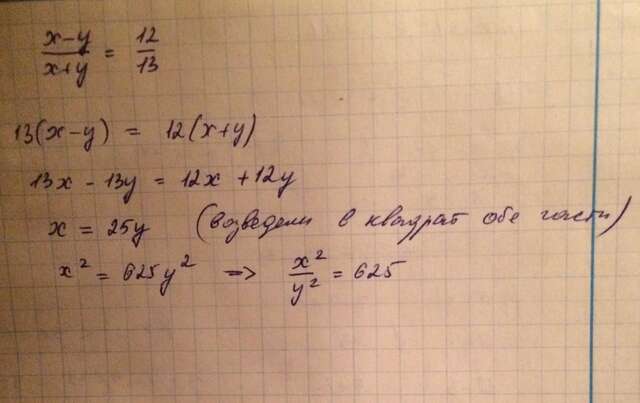 x-y/x+y = 12/13
13(x-y) = 12(x+y)
13x - 13y = 12x + 12y
x = 25y (возведели в квадрат обе части)
x² = 625y² => x²/y² = 625